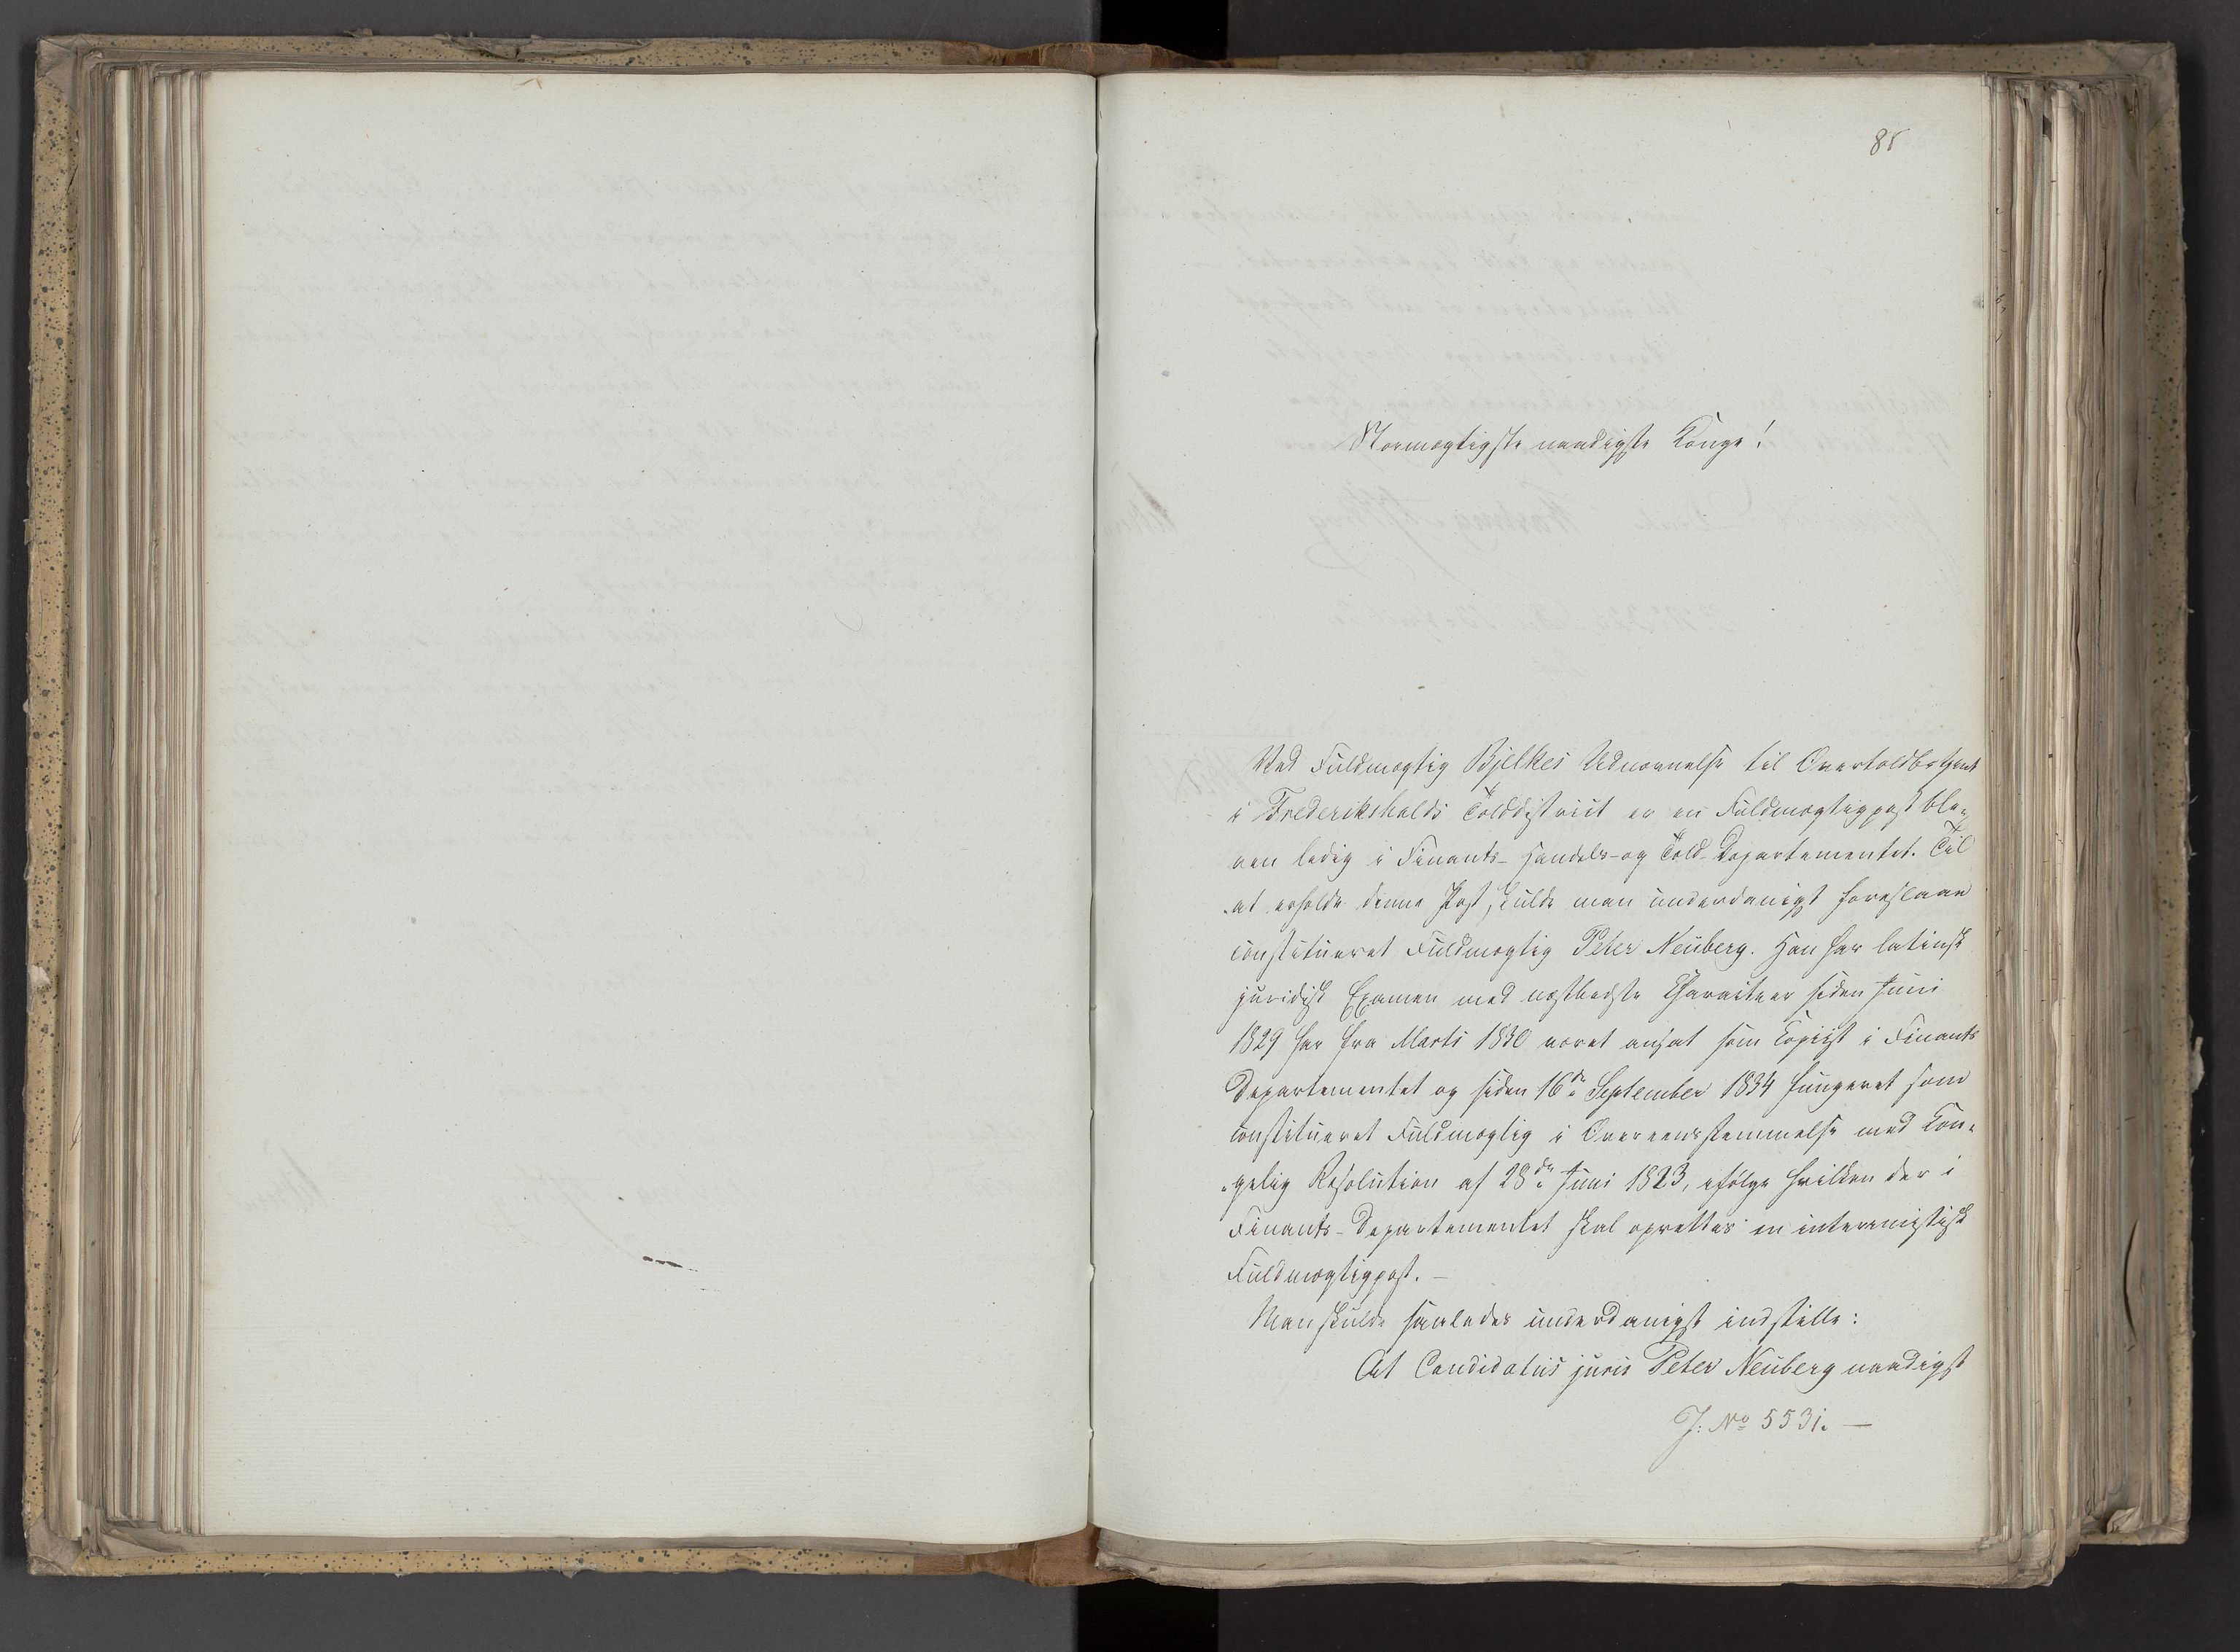 85
Stormægtigste naadigste Konge!
Ved Fuldmægtig Bjelkes Udnævnelse til Overtoldbetjent
i Frederikshalds Tolddistrict er en Fuldmægtigpost ble-
ven ledig i Finants- Handels- og Told-Departementet. Til
at erholde denne Post, skulde man underdanigst foreslaae
constitueret Fuldmægtig Peter Neuberg. Han har latinsk
juridisk Examen med næstbedste Charakteer siden Juni
1829 har fra Marts 1830 været ansat som Copiist i Finants
Departementet og siden 16de September 1834 fungeret som
constitueret Fuldmægtig i Overeensstemmelse med Kon-
gelig Resolution af 28de Juni 1823, ifølge hvilken der i
Finants-Departementet skal oprettes en interimistisk
Fuldmægtigpost. —
Man skulde saaledes underdanigst indstille:
At Candidatus juris Peter Neuberg naadigst
J: No 5531. —